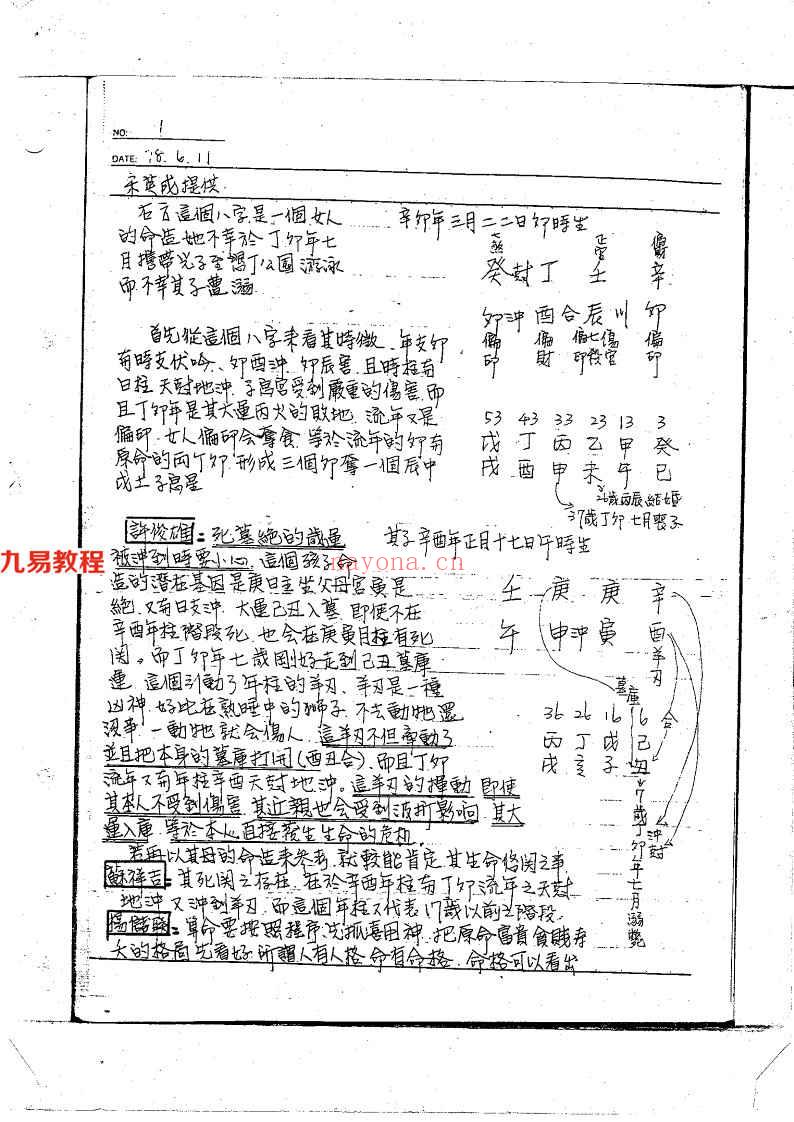 NO: 1
DATE: 78.6.11
宋英成提供.
右方這個八字是一個女人
的命造她不幸於丁卯年七
月攜帶兒子至 公園游泳
而不幸其子遭溺
辛卯年三月二二日卯時生
七煞 正官 偏財
癸 尅 丁 壬 辛
卯 沖 酉 合 辰 川 卯
偏印 偏財 偏印七殺傷官 偏印
首先從這個八字來看其特徵.年支卯
有時支伏吟、卯酉沖.卯辰害.且時柱有
日柱天尅地沖.子息宮受到嚴重的傷害.而
且丁卯年是其大運丙火的敗地.流年又是
偏印.女人偏印会奪食.等於流年的卯有
原命的兩个卯.形成三個卯奪一個辰中
戊土子息星
53 43 33 23 13 3
戊 丁 丙 乙 甲 癸
戌 酉 申 未 午 巳
26歲丙辰結婚
37歲丁卯七月喪子
許俊雄:死墓絕的歲運
被沖到時要小心.這個孩子命
造的潛在基因是庚日主坐父母宮寅是
絕.又有日支沖.大運己丑入墓.即使不在
辛酉年柱階段死.也会在庚寅月柱有死
関。而丁卯年七歲剛好走到己丑墓庫
運.這個引動了年柱的羊刃.羊刃是一種
凶神.好比在熟睡中的獅子.不去動牠還
沒事.一動牠就会傷人.這羊刃不但牽動了
並且把本身的墓庫打開(酉丑合).而且丁卯
流年又有年柱辛酉天尅地沖。這羊刃的撞動.即使
其本人不受到傷害.其近親也会受到波折影响.其大
運入庫.等於本人直接發生生命的危机.
其子辛酉年正月十七日午時生
壬 庚 庚 辛
午 申 沖 寅 酉 羊刃
36 26 16 6
丙 丁 戊 己
戌 亥 子 丑
墓庫
合
沖尅
7歲丁卯年七月溺斃
若再以其母的命造來參考.就較能肯定其生命攸関之事
蘇祥吉:其死関之存在.在於辛酉年柱有丁卯流年之天尅
地沖.又沖到羊刃.而這個年柱又代表17歲以前之階段.
算命要按照程序.先抓喜用神.把原命富貴貧賤壽
夭的格局先看好.所謂人有人格.命有命格.命格可以看出
九易教程
nayona.cn